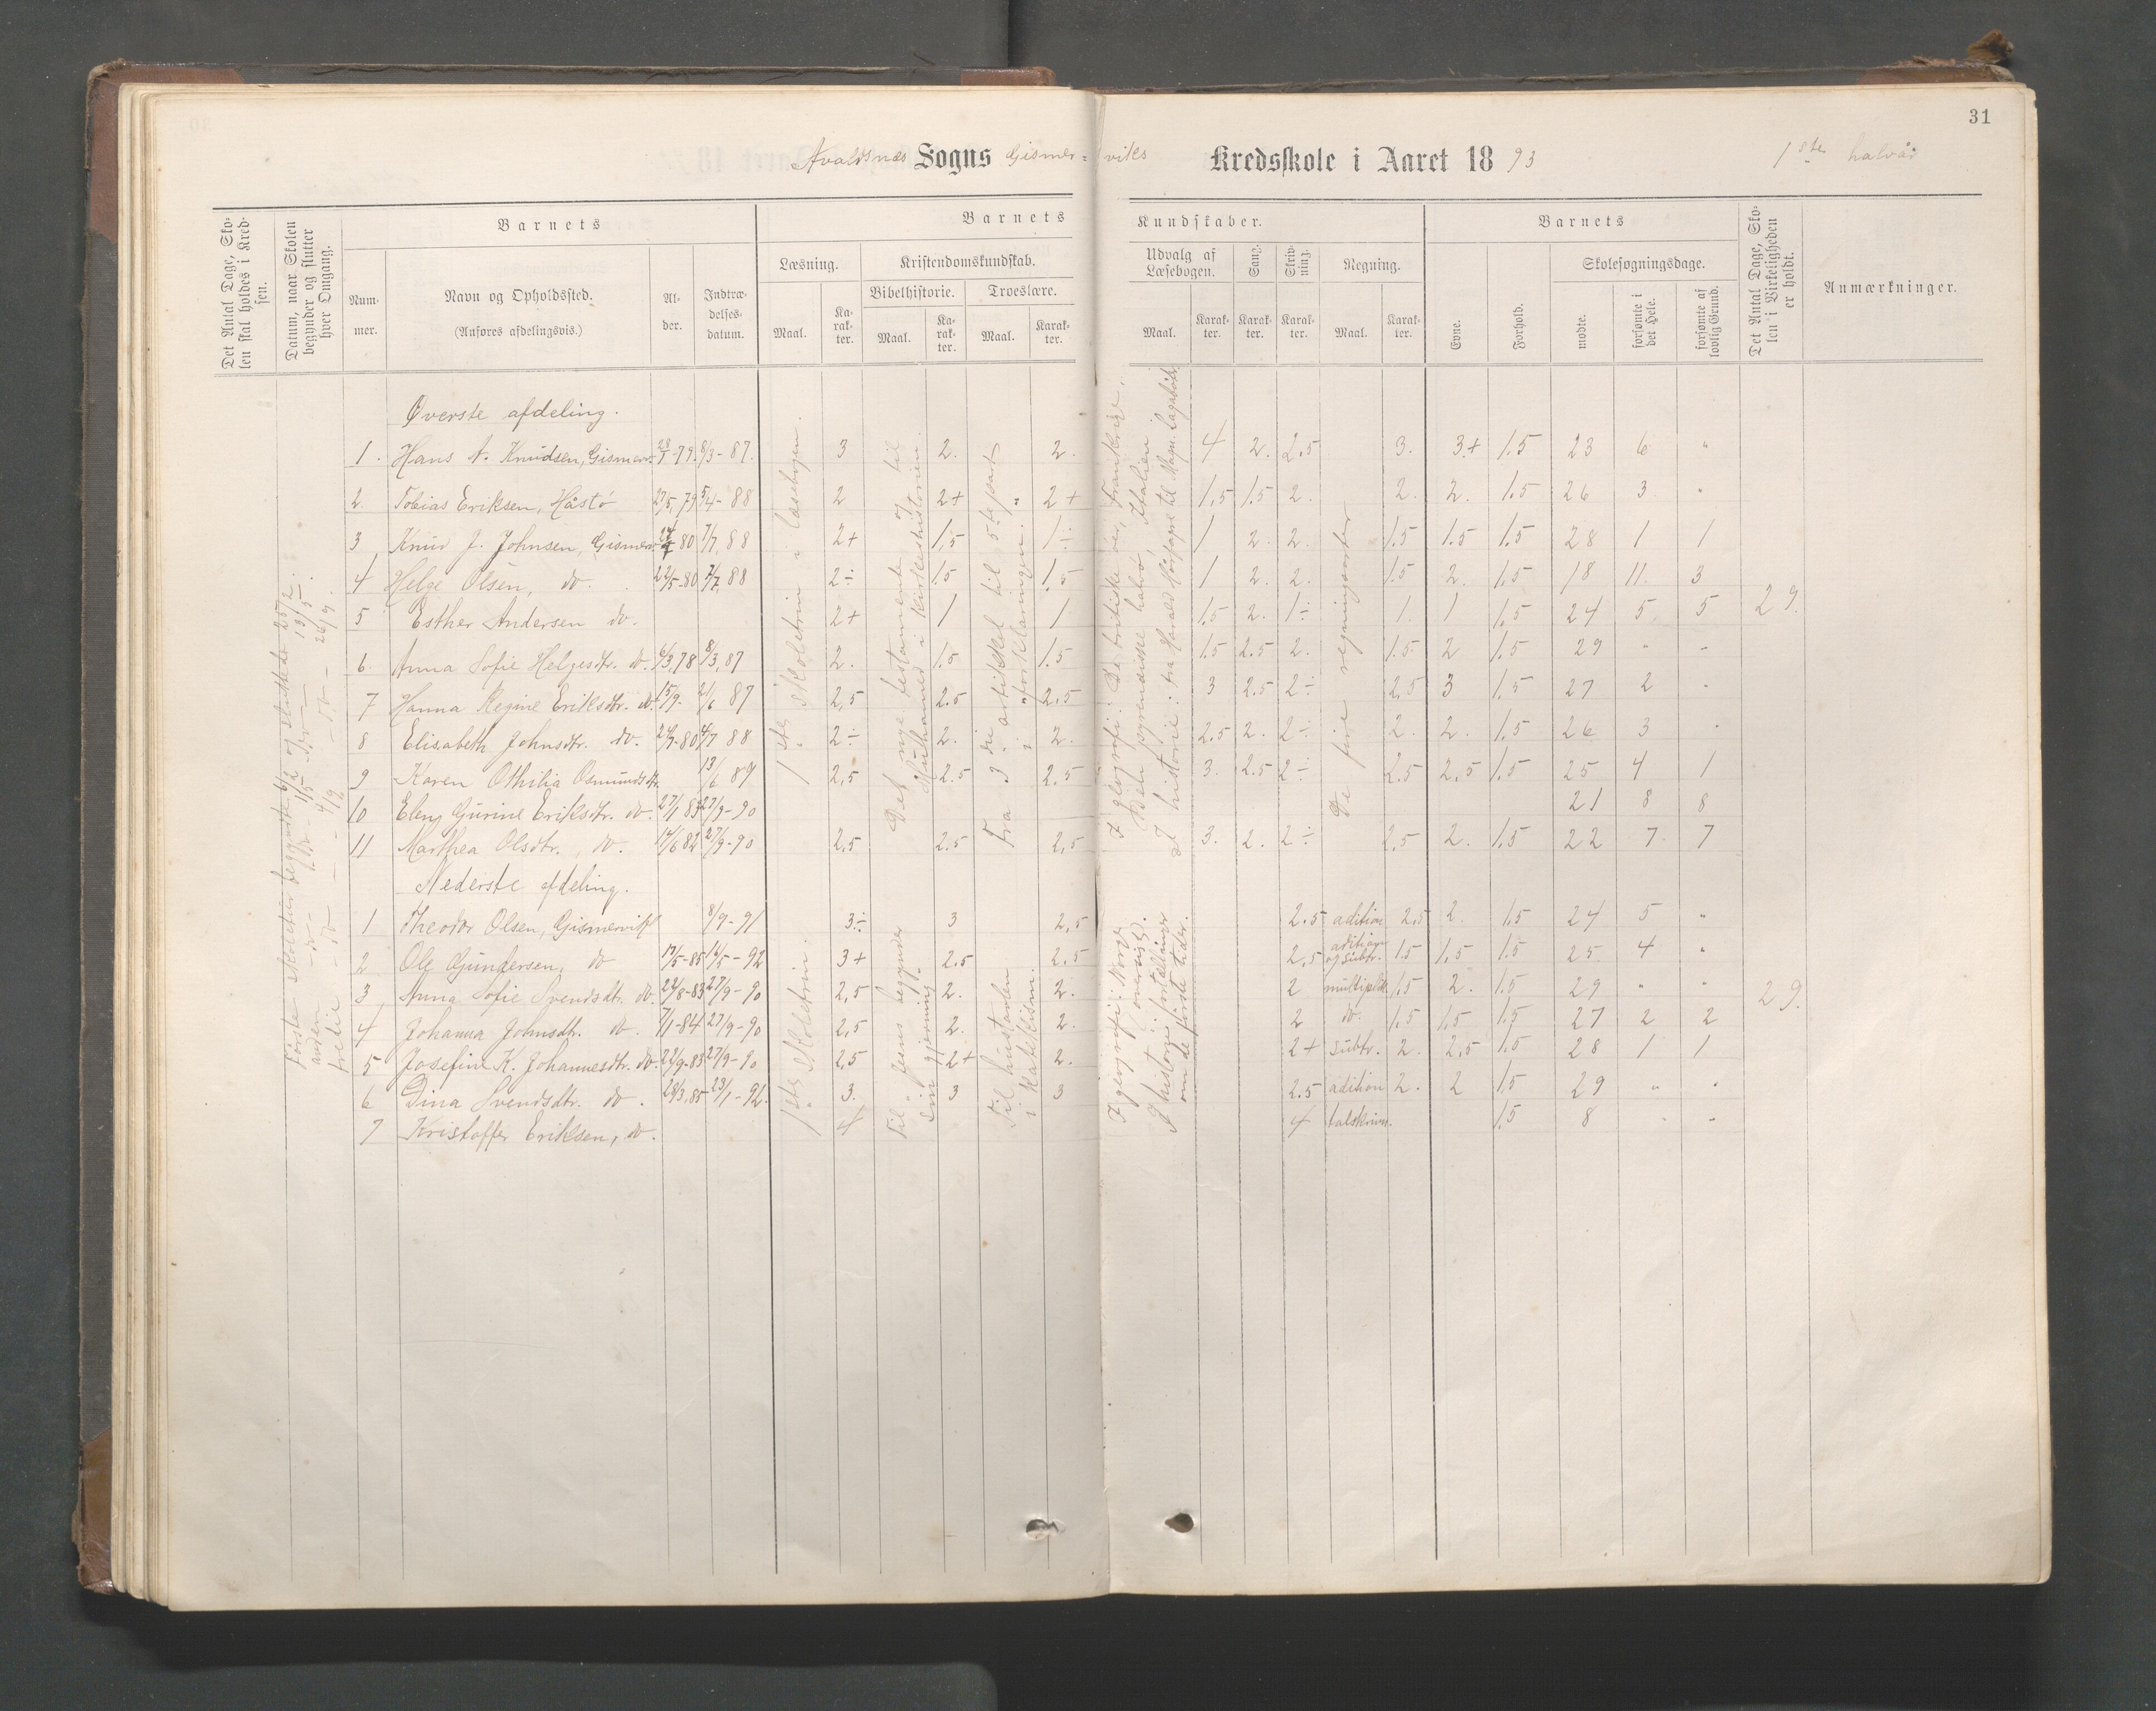 31
Avaldsnæs Sogns Gismer=viks Kredsskole i Aaret 1893 1ste halvår
Det Antal Dage, Skolen skal holdes i Kredsen.
Datum, naar Skolen begynder og slutter hver Omgang.
Barnets
Nummer.
Navn og Opholdssted.
(Anføres afdelingsvis.)
Alder.
Indtrædelsesdatum.
Barnets Kundskaber.
Læsning.
Maal.
Karakter.
Kristendomskundskab.
Bibelhistorie.
Maal.
Karakter.
Troeslære.
Maal.
Karakter.
Udvalg af Læsebogen.
Maal.
Karakter.
Sang.
Karakter.
Skrivning.
Karakter.
Regning.
Maal.
Karakter.
Barnets
Evne.
Forhold.
Skolesøgningsdage.
mødte.
forsømte i det Hele.
forsømte af lovlig Grund.
Det Antal Dage, Skolen i Virkeligheden er holdt.
Anmærkninger.
Første skoletur begyndte 6/2 og sluttede 25/2.
anden - do - 1/5 - do - 13/5.
tredie - do - 4/9 - do - 26/9.
Øverste afdeling.
1. Hans A. Knudsen, Gismerv. 28/7-79. 8/3-87. 3 2. 2. 4 2. 2.5 3. 3+ 1.5 23 6 "
2. Tobias Eriksen, Håstø 27/5,79 5/4-88 2 2+ 2+ 1,5 1.5 2. 2. 2. 1.5 26 3 "
3 Knud J. Johnsen, Gismerv. 80 7/7,88 2+ 1,5 1÷ 1 2. 2. 1.5 1.5 1.5 28 1 1
4 Helge Olsen, do. 22/5-80 7/7,88 2÷ 1.5 1.5 1 2. 2. 1.5 2. 1.5 18 11. 3
5 Esther Andersen do. 2+ 1 1 1.5 2. 1÷ 1. 1 1.5 24 5 5
29.
6. Anna Sofie Helgesdtr. do. 6/3,78 8/3,87 2. 1.5 1.5 1.5 2.5 2. 1.5 2 1.5 29 " "
7 Hanna Regine Eriksdtr. do. 15/9- 21/6 87 2,5 2.5 2.5 3 2.5 2÷ 2,5 3 1.5 27 2 "
8 Elisabeth Johnsdtr. do. 24/7-80 4/7 88 2÷ 2. 2. 2.5 2. 2÷ 2. 2. 1.5 26 3 "
9 Karen Othilia Osmundsdtr. 13/6 89 2,5 2.5 2.5 3. 2.5 2÷ 2.5 2,5 1.5 25 4 1
10 Eleny Gurine Eriksdtr. do. 27/1 83 27/9-90 21 8 8
11 Marthea Olsdtr., do. 14/6 82 27/9-90 2,5 2.5 2,5 3. 2. 2÷ 2,5 2. 1.5 22 7 7
1ste skoletrin i læsebogen.
Det nye testamente til
i kirkehistorien.
Fra 3die artikkel til 5te part
" " forklaringen.
I geografi: De britiske øer, Frankrige,
Den pyrenæiske halvø, Italien.
I historie: fra Harald Hårfagre til Magn. Lagabøter
De fire regningsarter
Nederste afdeling.
1 Theodor Olsen, Gismervik 8/9-91 3÷ 3 2,5 2.5 adition 2,5 2. 1.5 24 5 "
2 Ole Gundersen, do 13/5-85 16/5-92 3+ 2.5 2.5 2,5 adition og subtr. 1.5 1,5 1.5 25 4 "
3 Anna Sofie Svendsdtr. do. 22/8-83 27/9-90 2,5 2. 2. 2 multiplik. 1.5 2. 1.5 29 " "
29.
4 Johanna Johnsdtr. do. 7/1-84 27/9-90 2,5 2. 2. 2 do. 1,5 1.5 1.5 27 2 2
5 Josefine K. Johannesdtr. do. 22/9-83 27/9-90 2,5 2+ 2. 2+ subtr. 2. 2,5 1.5 28 1 1
6 Dina Svendsdtr. do. 28/3,85 23/1-92. 3. 3 3 2.5 adition 2. 2 1.5 29 " "
7 Kristoffer Eriksen, do. 4 4 talskrivn. 1.5 8 - -
1ste skoletrin.
Til Jesus begynder
sin gjerning.
Til hustavlen
i katekism.
I geografi: Norge
(oversigt).
I historie: fortællinger
om de første tider.